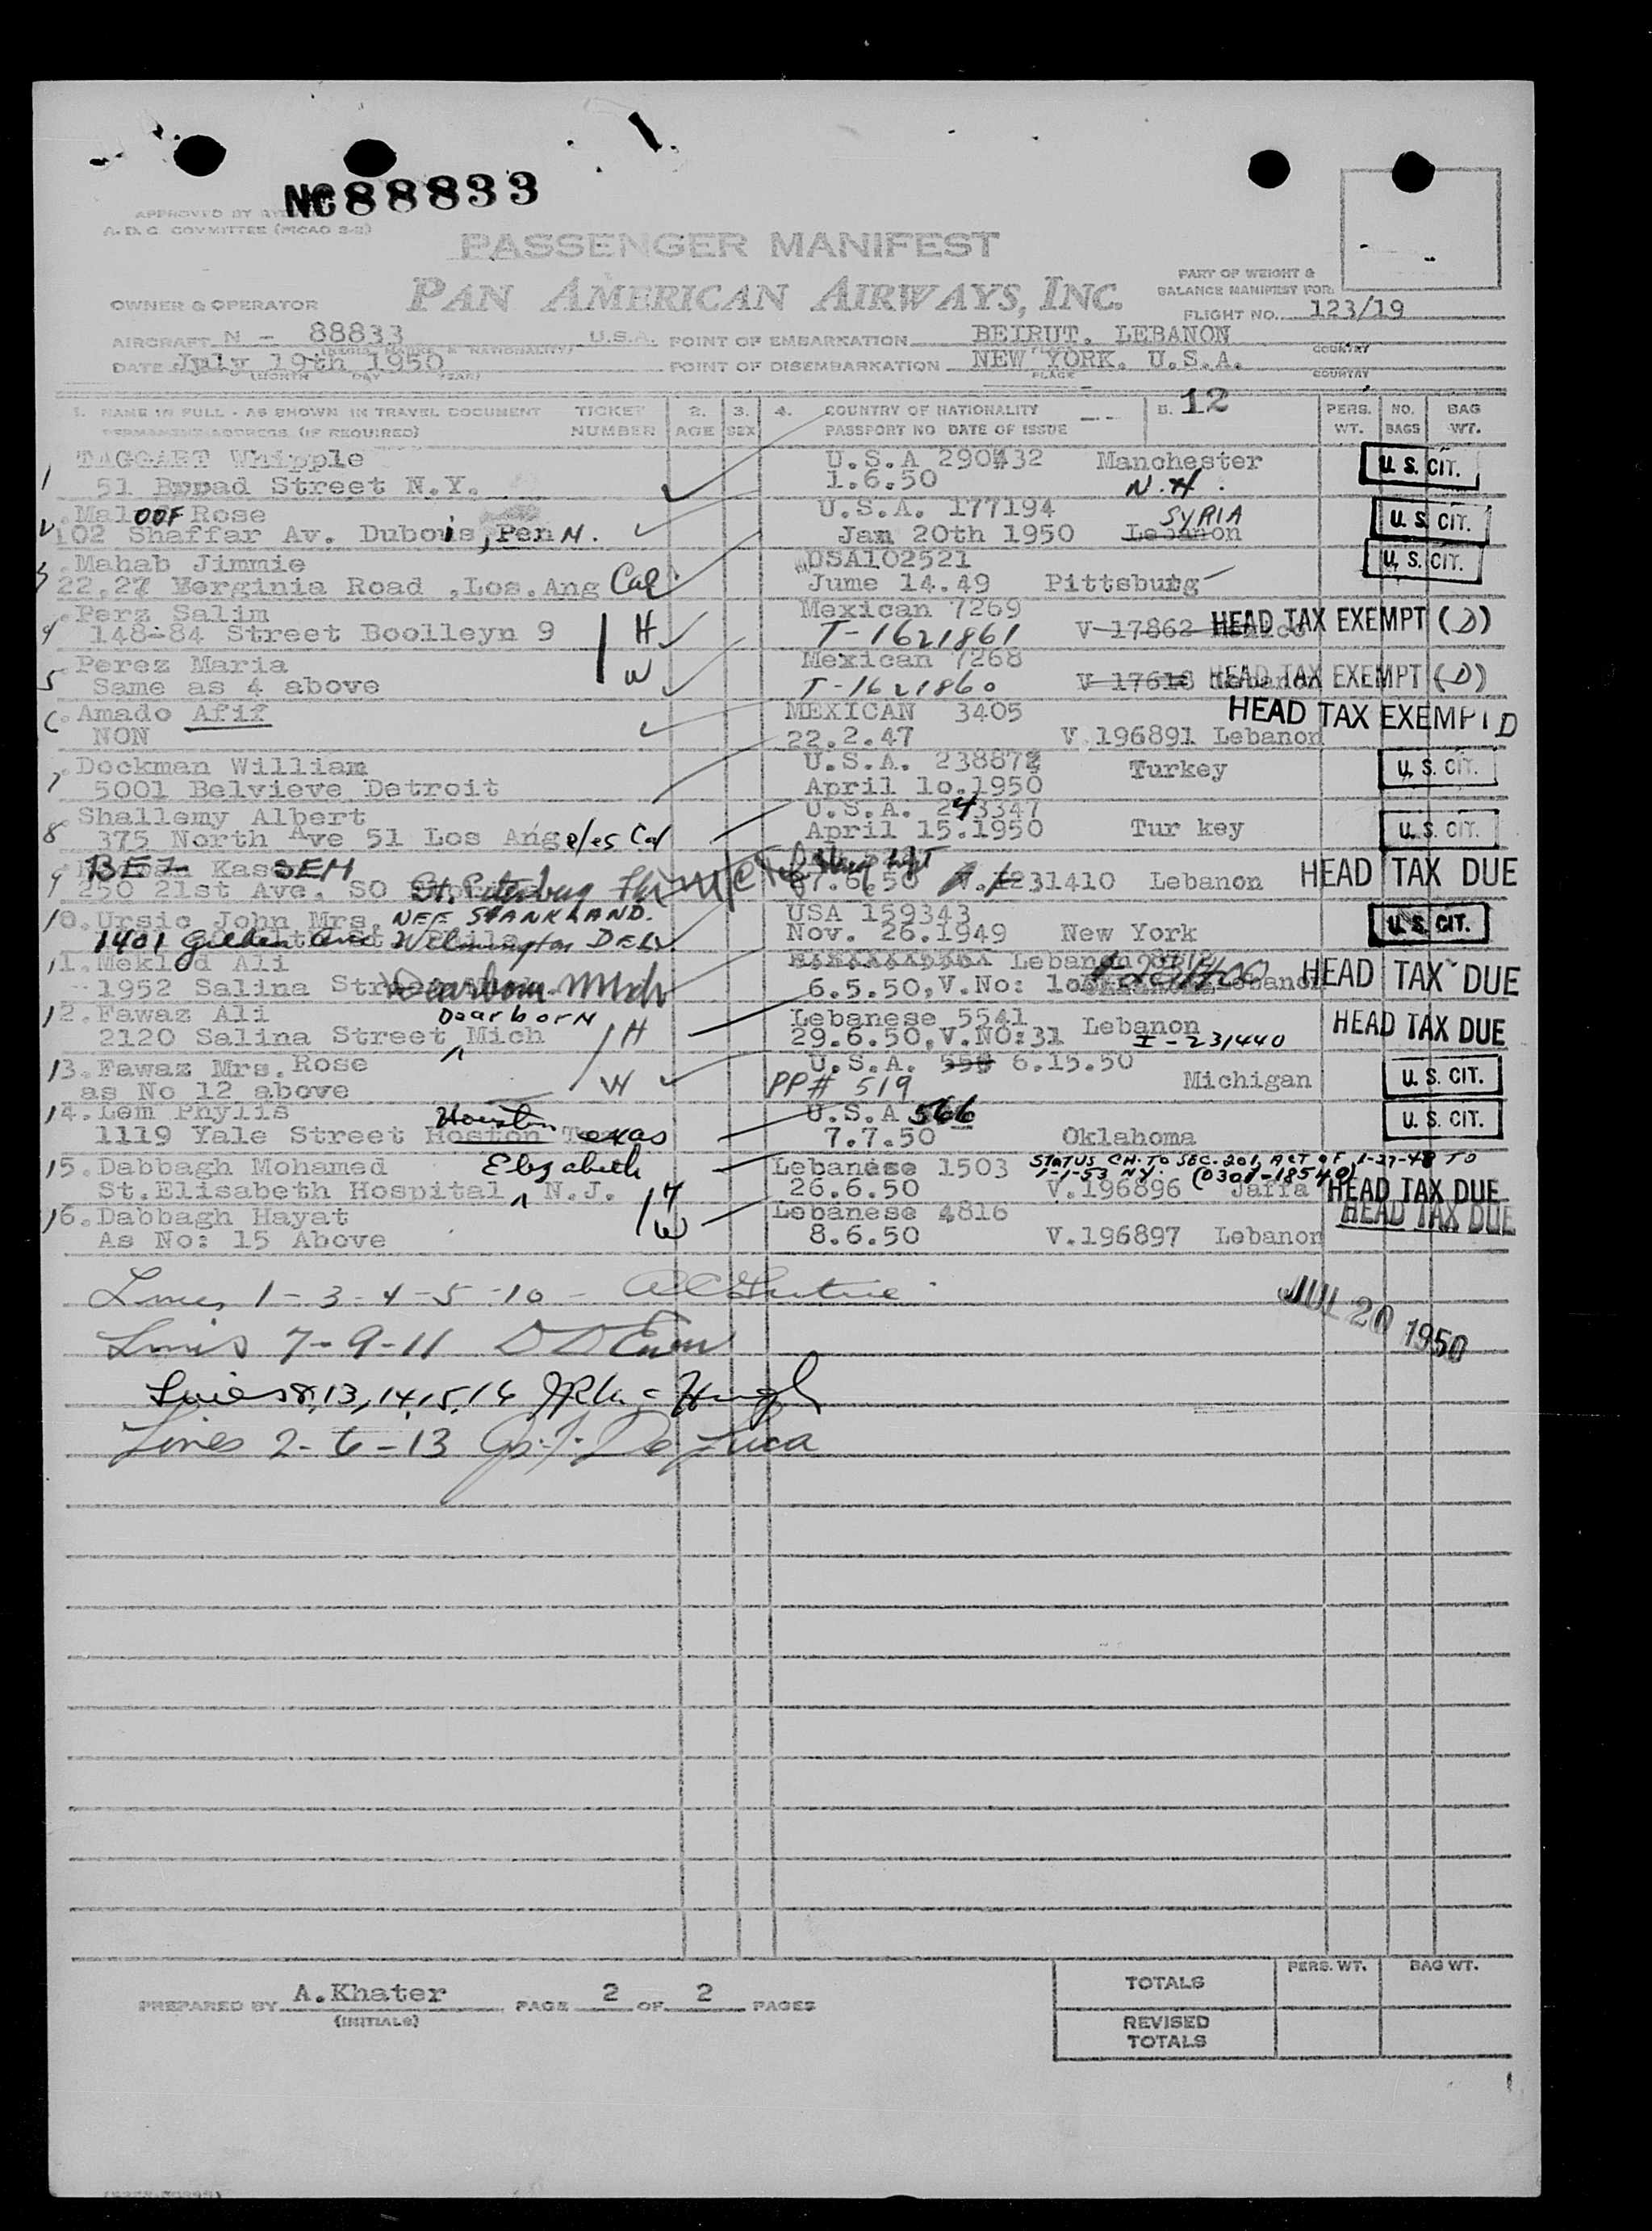 NC88833
APPROVED BY
A.D.C COMMITTEE (MCAO 2-2)
PASSENGER MANIFEST
PAN AMERICAN AIRWAYS, INC.
PART OF WEIGHT &
BALANCE MANIFEST FOR
OWNER & OPERATOR
FLIGHT NO. 123/19
AIRCRAFT N - 88833 U.S.A. POINT OF EMBARKATION BEIRUT. LEBANON
DATE July 19th 1950 POINT OF DISEMBARKATION NEW YORK. U.S.A.
(MONTH DAY YEAR) PLACE COUNTRY
1. NAME IN FULL - AS SHOWN IN TRAVEL DOCUMENT TICKET 2. 3. 4. COUNTRY OF NATIONALITY 5. 12 PERS. NO. BAG
PERMANENT ADDRESS (IF REQUIRED) NUMBER AGE SEX PASSPORT NO DATE OF ISSUE WT. BAGS WT.
1 TAGGART Whipple U.S.A 290432 Manchester U.S. CIT.
51 Broad Street N.Y. 1.6.50 N.H.
2. MalOOF Rose U.S.A. 177194 SYRIA U.S. CIT.
102 Shaffar Av. Dubois, PenN. Jan 20th 1950 Lebanon
3. Mahab Jimmie USA102521 U.S. CIT.
22,27 Verginia Road ,Los.Ang Cal Jume 14.49 Pittsburg
4. Perz Salim Mexican 7269 HEAD TAX EXEMPT (D)
148-84 Street Boolleyn 9 H T-1621861 V 17862
5. Perez Maria Mexican 7268 HEAD TAX EXEMPT (D)
Same as 4 above W T-1621860 V 17618 Lebanon
6. Amado Afif MEXICAN 3405 HEAD TAX EXEMPT D
NON 22.2.47 V.196891 Lebanon
7. Dockman William U.S.A. 238872 Turkey U.S. CIT.
5001 Belvieve Detroit April 1o.1950
8. Shallemy Albert U.S.A. 243347
375 North Ave 51 Los Angeles Cal April 15.1950 Tur key U.S. CIT.
9 Kas SEM HEAD TAX DUE
250 21st Ave. SO St. Petersburg Fla 7.6.50 231410 Lebanon
10. Ursic John Mrs. NEE STANKLAND. USA 159343 U.S. CIT.
1401 Gilden Ave Wilmington DEL. Nov. 26.1949 New York
11. Meklad Ali Lebanon HEAD TAX DUE
1952 Salina Street Dearborn Mich 6.5.50,V.No: Lebanon
12. Fawaz Ali Dearborn Lebanese 5541 Lebanon HEAD TAX DUE
2120 Salina Street Mich H 29.6.50,V.NO:31 I-231440
13. Fawaz Mrs. Rose U.S.A. 6.15.50 U.S. CIT.
as No 12 above W PP# 519 Michigan
14. Lem Phylis U.S.A 566 U.S. CIT.
1119 Yale Street Hoston Houston Texas 7.7.50 Oklahoma
15. Dabbagh Mohamed Elizabeth Lebanese 1503 STATUS CH. TO SEC. 201, ACT OF 1-27-48 TO
1-1-53 N.Y. (0301-18540)
St.Elisabeth Hospital N.J. H 26.6.50 V.196896 Jaffa HEAD TAX DUE
16. Dabbagh Hayat W Lebanese 4816 HEAD TAX DUE
As No: 15 Above 8.6.50 V.196897 Lebanon
Lines 1-3-4-5-10
JUL 20 1950
Lines 7-9-11
Lines 8,13,14,15,16
Lines 2-6-13 De Luca
PREPARED BY A.Khater PAGE 2 OF 2 PAGES
(INITIALS)
PERS. WT. BAG WT.
TOTALS
REVISED
TOTALS